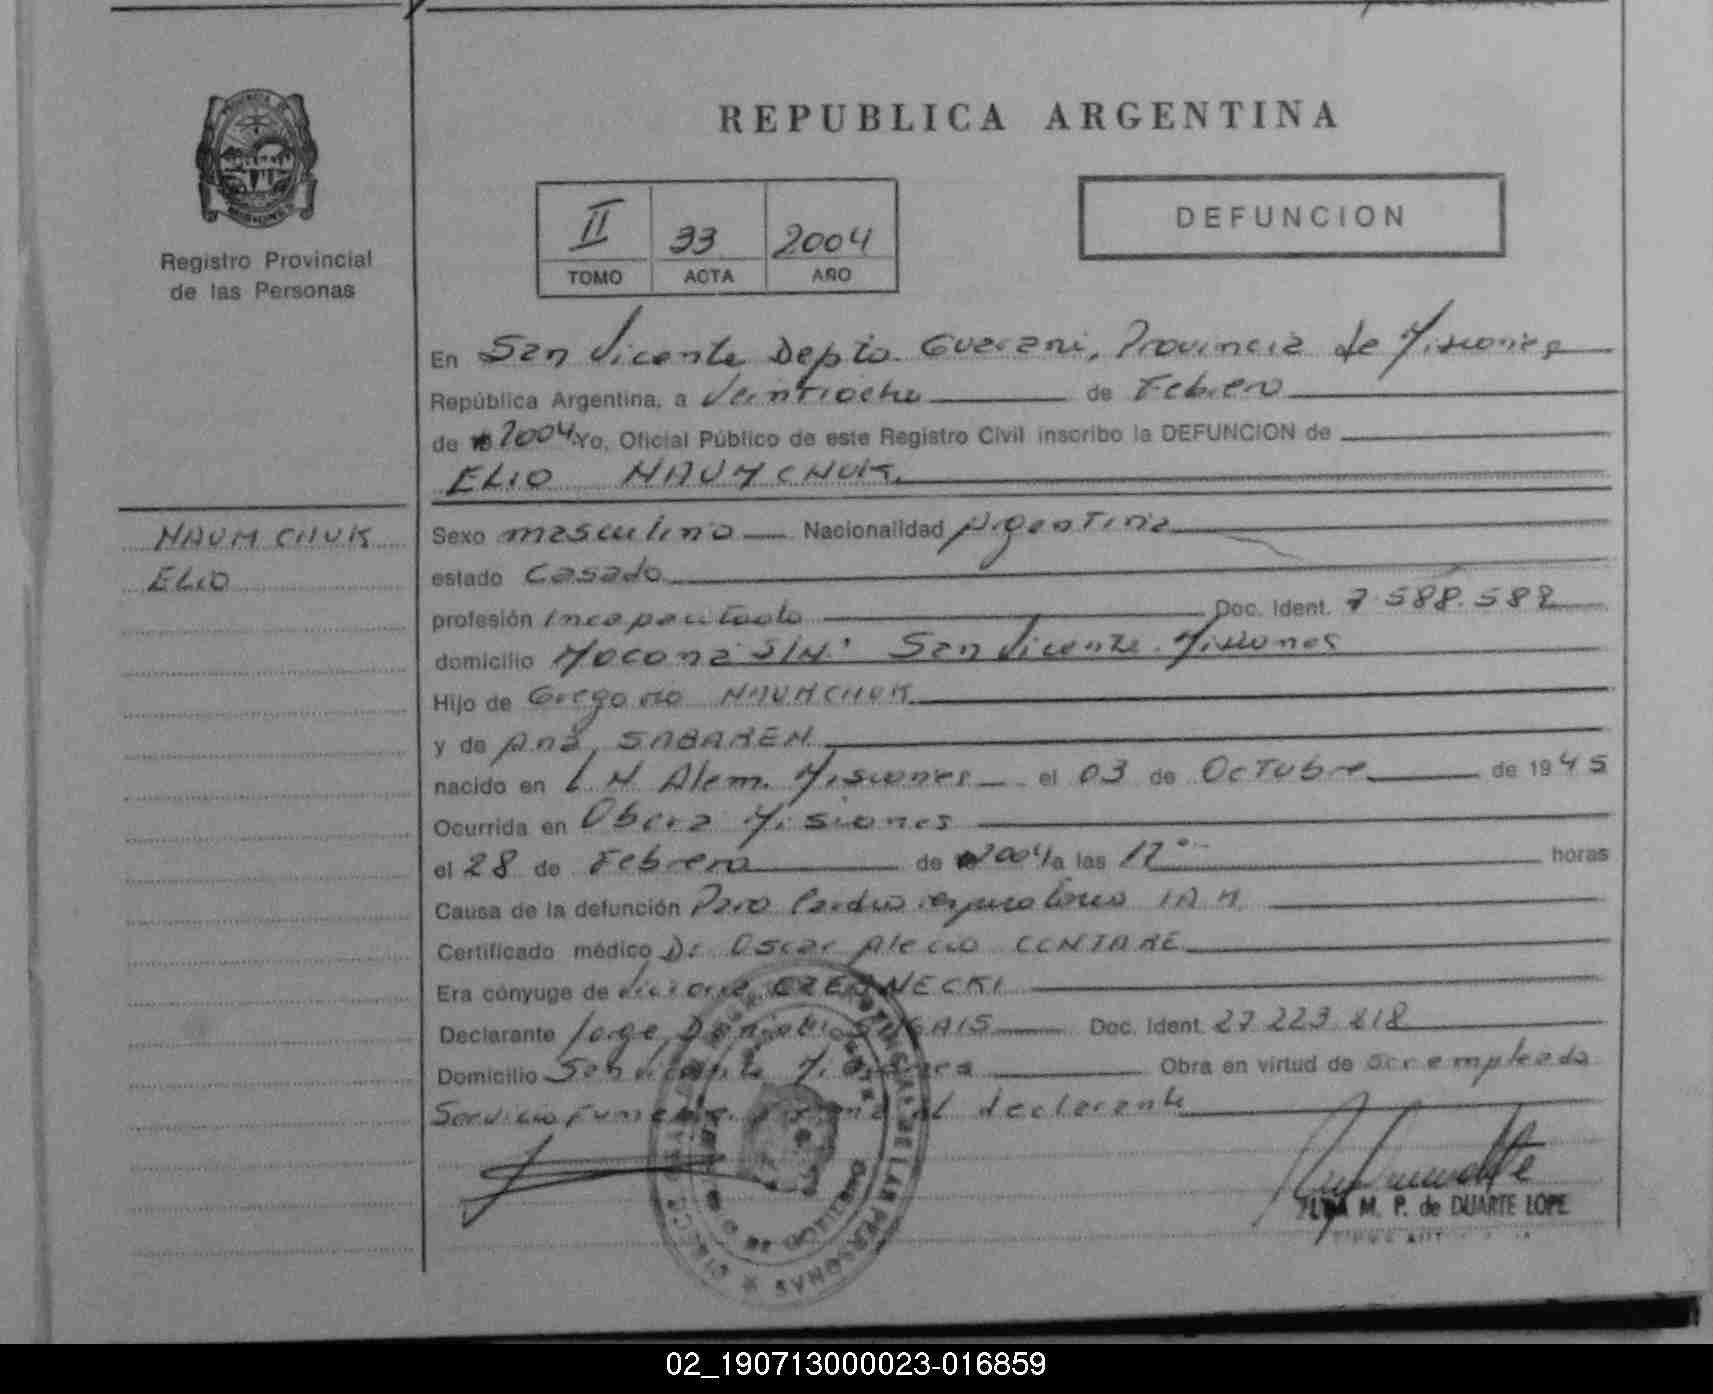 REPUBLICA ARGENTINA
II 33 2004
TOMO ACTA AÑO
DEFUNCION
Registro Provincial
de las Personas
En San Vicente Depto. Guarani, Provincia de Misiones
República Argentina, a Veintiocho de Febrero
de 2004 Yo, Oficial Público de este Registro Civil inscribo la DEFUNCION de
ELIO NAUMCHUK
NAUMCHUK
ELIO
Sexo masculino Nacionalidad Argentina
estado Casado
profesión Incapacitado Doc. Ident. 7.588.588
domicilio Mocona S/N: San Vicente. Misiones
Hijo de Gregorio NAUMCHUK
y de Ana, SABAREN
nacido en L. N. Alem. Misiones el 03 de Octubre de 1945
Ocurrida en Obera Misiones
el 28 de Febrero de 2004 a las 17 horas
Causa de la defunción Paro Cardio respiratorio IAM
Certificado médico Dr Oscar Alecio
Era cónyuge de Victoria CZERNECKI
Declarante Jorge Daniel Doc. Ident. 27.223.818
Domicilio San Vicente Misiones Obra en virtud de ser empleado
Servicio Funebre. Firma el declarante
M. P. de DUARTE LOPE
02_190713000023-016859